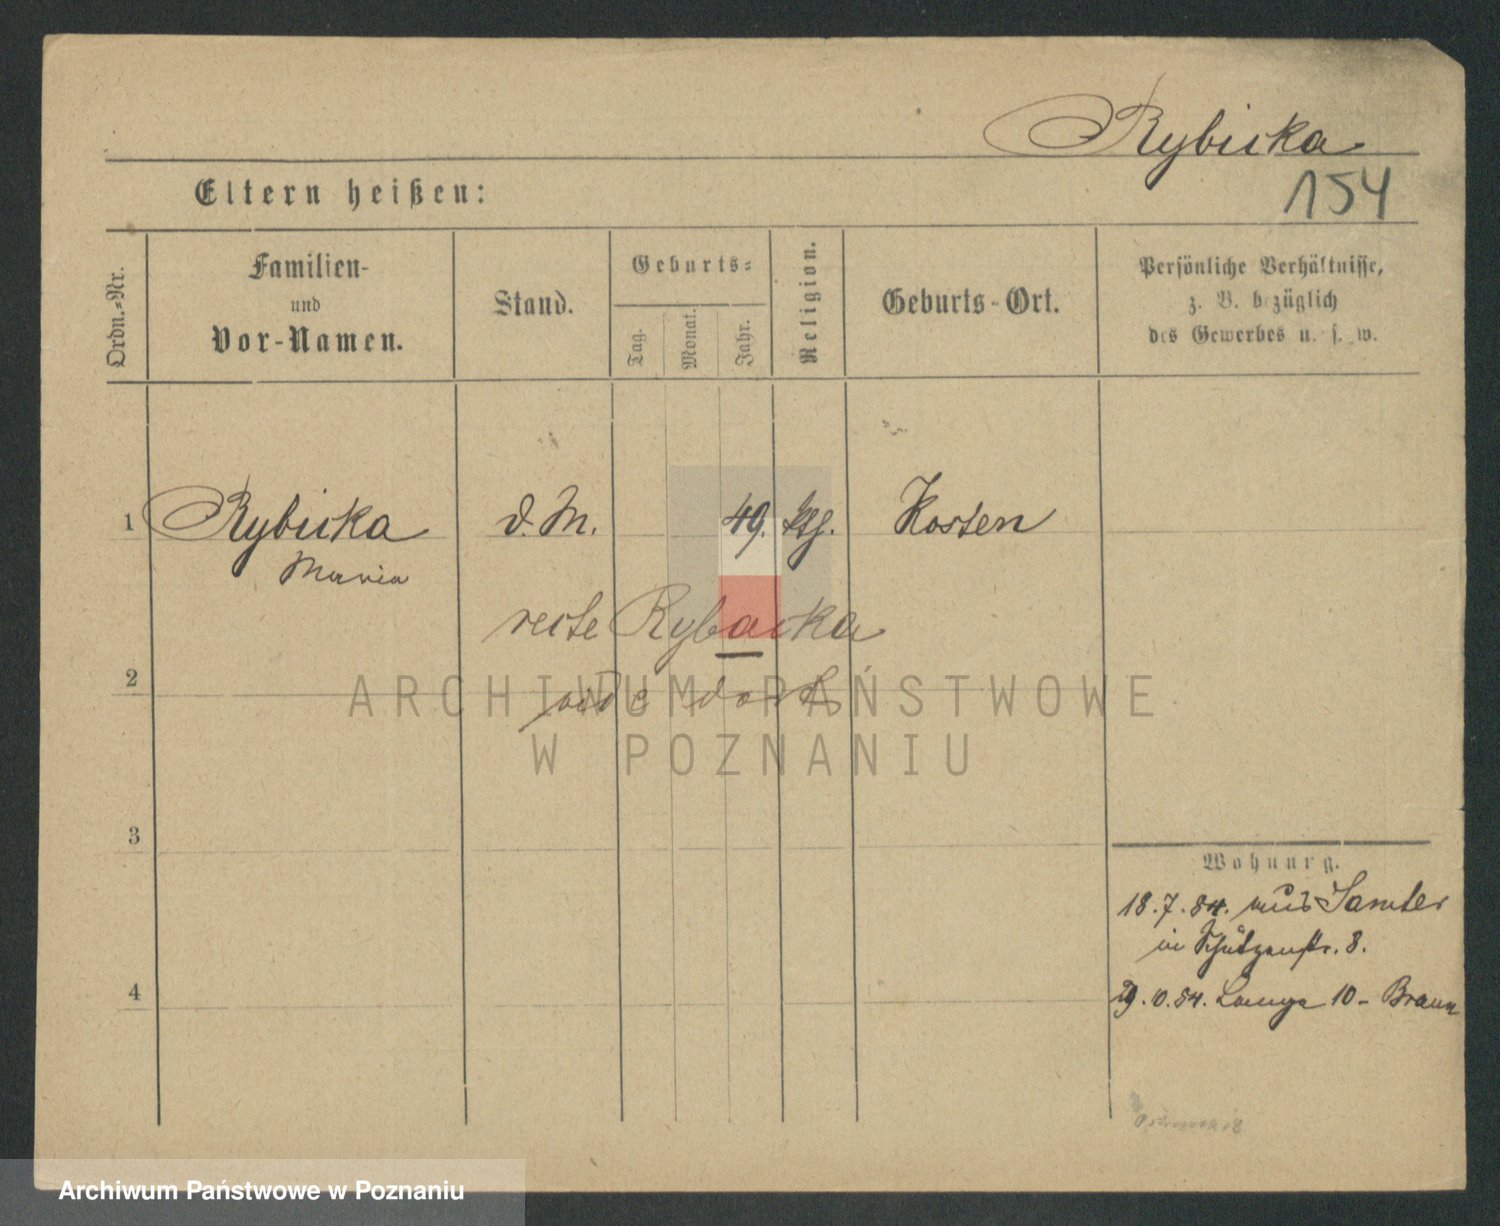 Rybicka
154
Eltern heißen:
Ordn.-Nr.
Familien-
und
Vor-Namen.
Stand.
Geburts-
Tag.
Monat.
Jahr.
Religion.
Geburts-Ort.
Persönliche Verhältnisse,
z. B. bezüglich
des Gewerbes u. s. w.
1
Rybicka
Maria
d. M.
49.
ktg.
Kosten
recte Rybacka
2
vide dort
ARCHIWUM PAŃSTWOWE
W POZNANIU
3
Wohnung.
18.7.84. aus Samter
in Schützenstr. 8.
4
29.10.84. Lange 10 - Braun
Archiwum Państwowe w Poznaniu